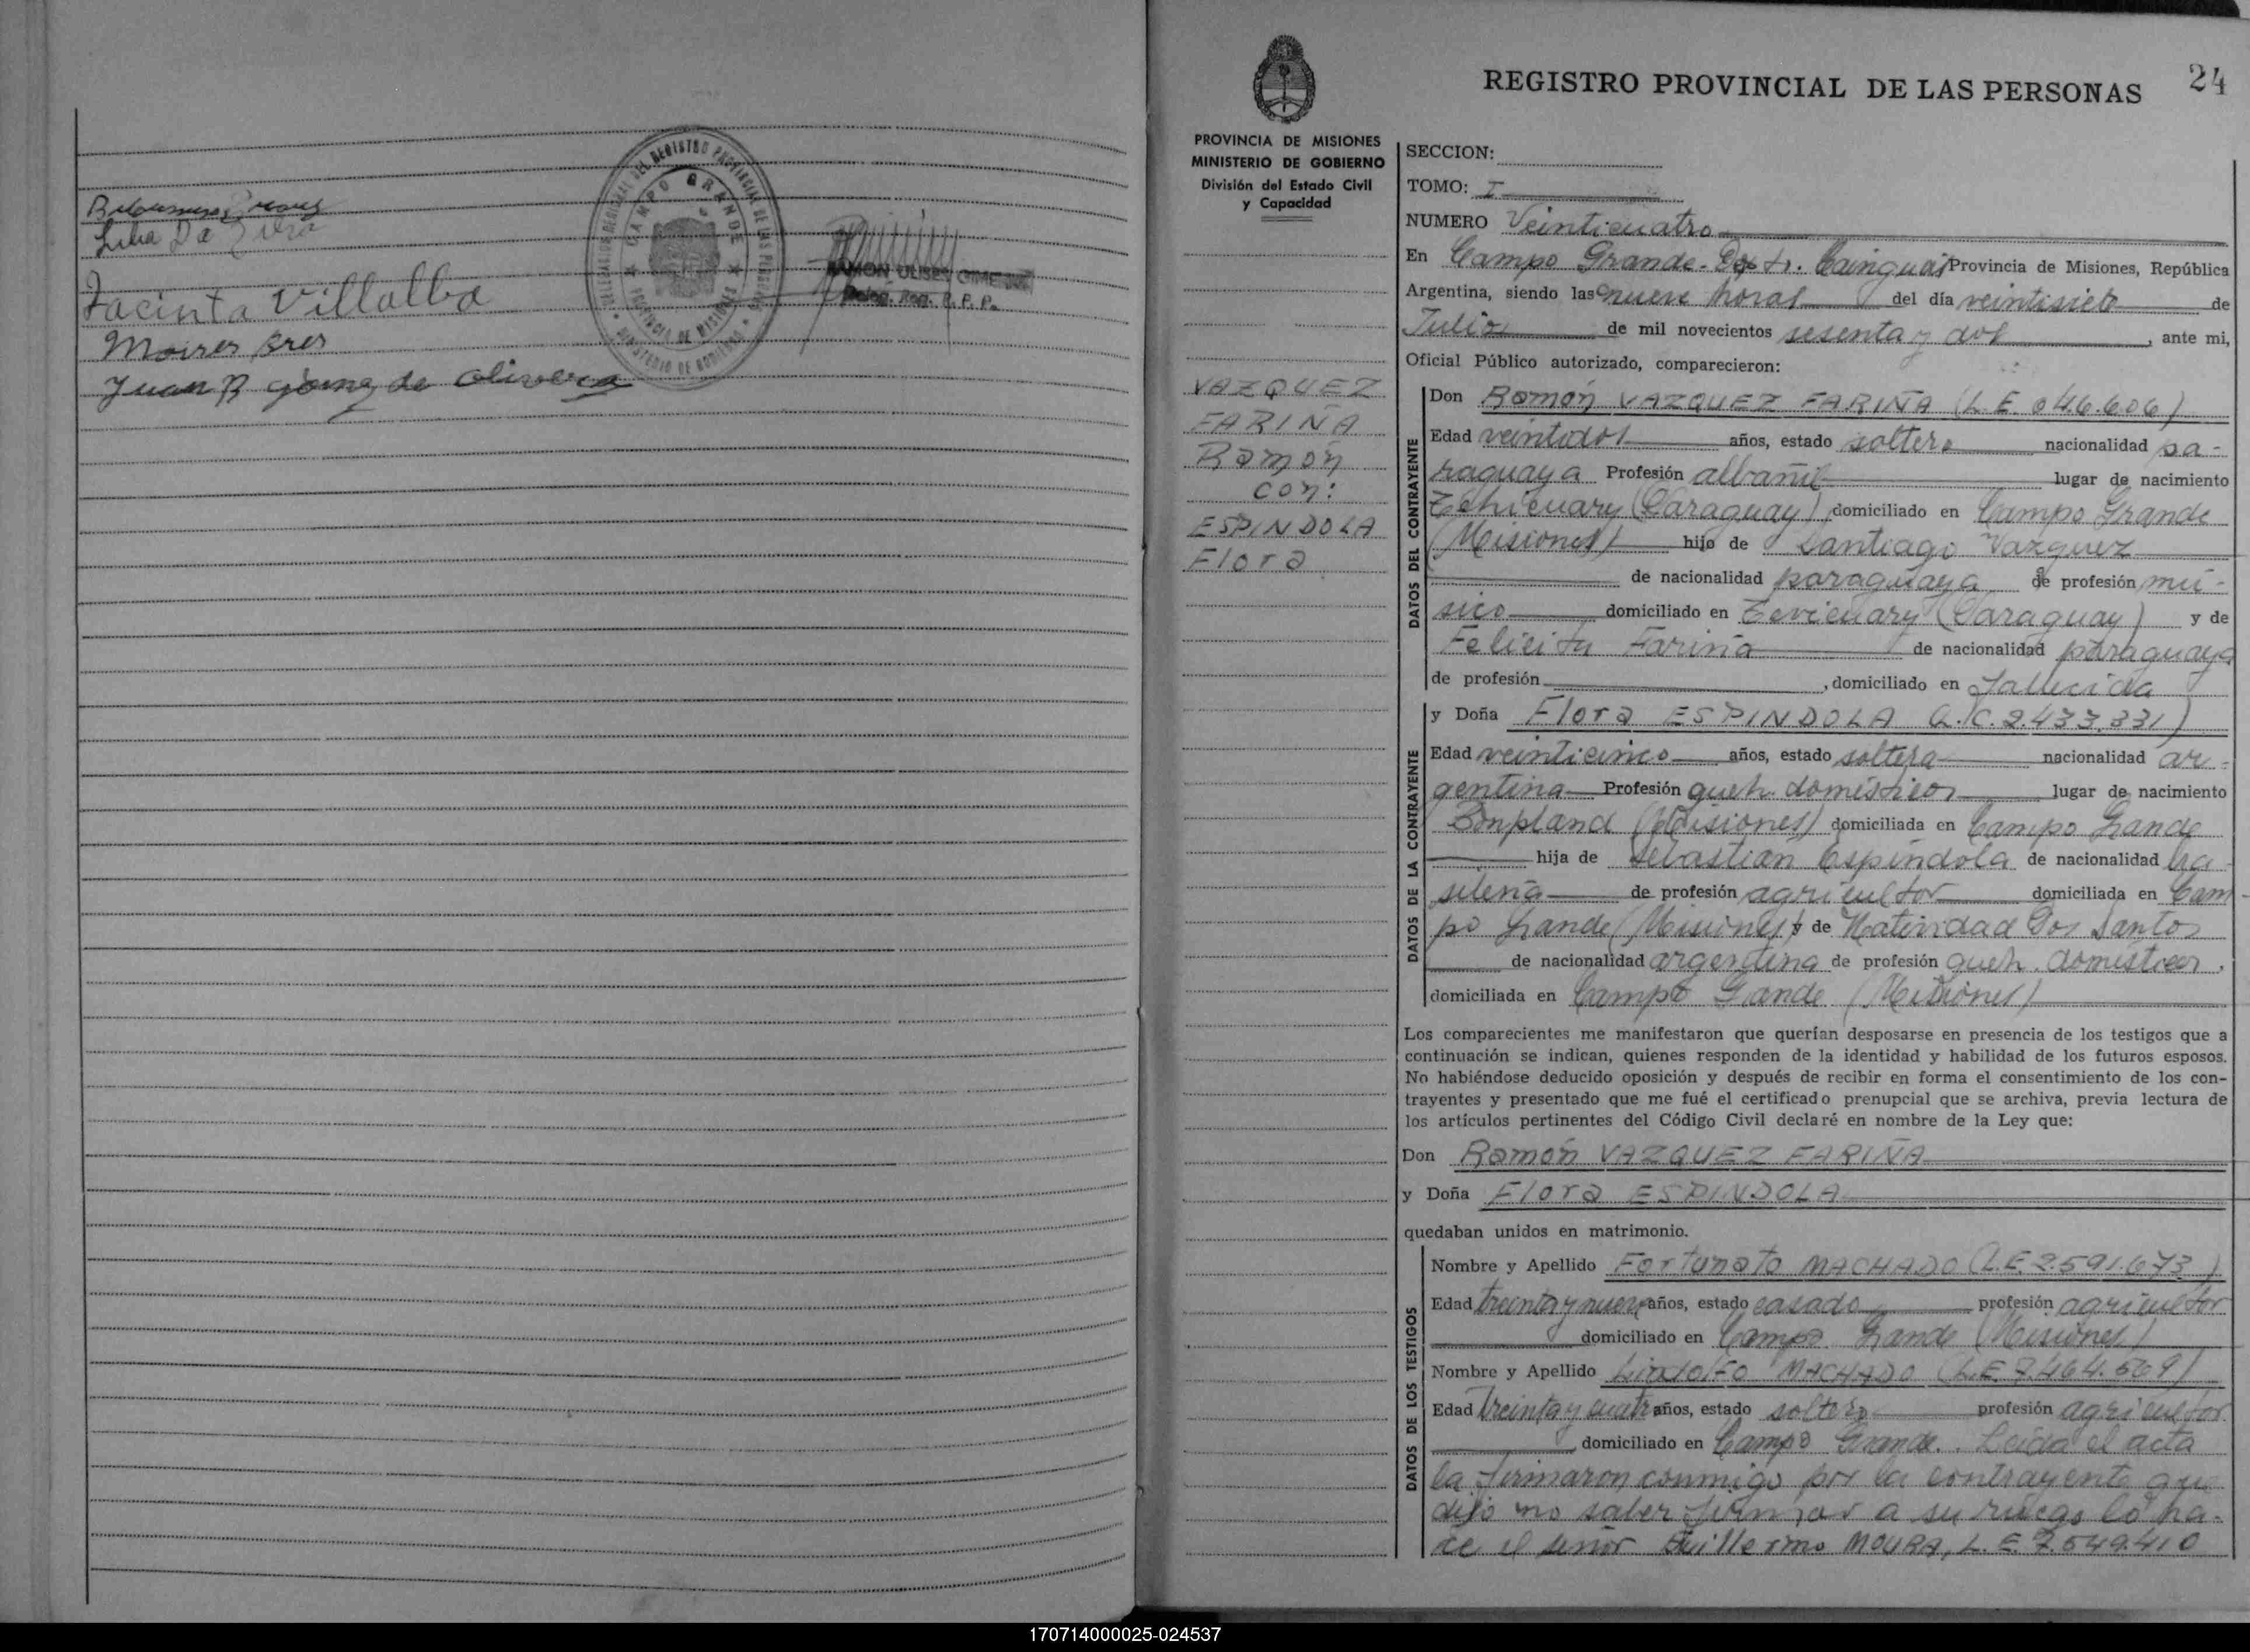 Lilia Da Silva
Jacinta Villalba
Moises
Juan B Gomez de Olivera
DELEGACION REGIONAL DEL REGISTRO PROVINCIAL DE LAS PERSONAS
CAMPO GRANDE
PROVINCIA DE MISIONES
MINISTERIO DE GOBIERNO
RAMON ULISES GIMENEZ
Deleg. Reg. R. P. P.
PROVINCIA DE MISIONES
MINISTERIO DE GOBIERNO
División del Estado Civil
y Capacidad
VAZQUEZ
FARIÑA
Ramón
con:
ESPINDOLA
Flora
REGISTRO PROVINCIAL DE LAS PERSONAS 24
SECCION:
TOMO: I
NUMERO Veinticuatro
En Campo Grande. Dpto. Cainguás Provincia de Misiones, República
Argentina, siendo las nueve horas del día veintisiete de
Julio de mil novecientos sesenta y dos, ante mi,
Oficial Público autorizado, comparecieron:
DATOS DEL CONTRAYENTE
Don Ramón VAZQUEZ FARIÑA (L.E. 046.606)
Edad veintidos años, estado soltero nacionalidad pa-
raguaya Profesión albañil lugar de nacimiento
Tehicuary (Paraguay) domiciliado en Campo Grande
(Misiones) hijo de Santiago Vazquez
de nacionalidad paraguaya de profesión mú-
sico domiciliado en Tevicuary (Paraguay) y de
Felicita Fariña de nacionalidad paraguaya
de profesión, domiciliado en fallecida
DATOS DE LA CONTRAYENTE
y Doña Flora ESPINDOLA (L.C. 2.433.331)
Edad veinticinco años, estado soltera nacionalidad ar-
gentina Profesión queh. domésticos lugar de nacimiento
Bonpland (Misiones) domiciliada en Campo Grande
hija de Sebastian Espíndola de nacionalidad bra-
sileña de profesión agricultor domiciliada en Cam-
po Grande (Misiones) y de Natividad Dos Santos
de nacionalidad argentina de profesión queh. domésticos,
domiciliada en Campo Grande (Misiones)
Los comparecientes me manifestaron que querían desposarse en presencia de los testigos que a
continuación se indican, quienes responden de la identidad y habilidad de los futuros esposos.
No habiéndose deducido oposición y después de recibir en forma el consentimiento de los con-
trayentes y presentado que me fué el certificado prenupcial que se archiva, previa lectura de
los artículos pertinentes del Código Civil declaré en nombre de la Ley que:
Don Ramón VAZQUEZ FARIÑA
y Doña Flora ESPINDOLA
quedaban unidos en matrimonio.
DATOS DE LOS TESTIGOS
Nombre y Apellido Fortunato MACHADO (L.E. 2.591.673)
Edad treinta y nueve años, estado casado profesión agricultor
domiciliado en Campo Grande (Misiones)
Nombre y Apellido Lindolfo MACHADO (L.E. 7.464.569)
Edad treinta y cuatro años, estado soltero profesión agricultor
domiciliado en Campo Grande. Leida el acta
la firmaron conmigo por la contrayente que
dijo no saber firmar a su ruego lo ha-
ce el señor Guillermo MOURA, L.E. 7.549.410
170714000025-024537